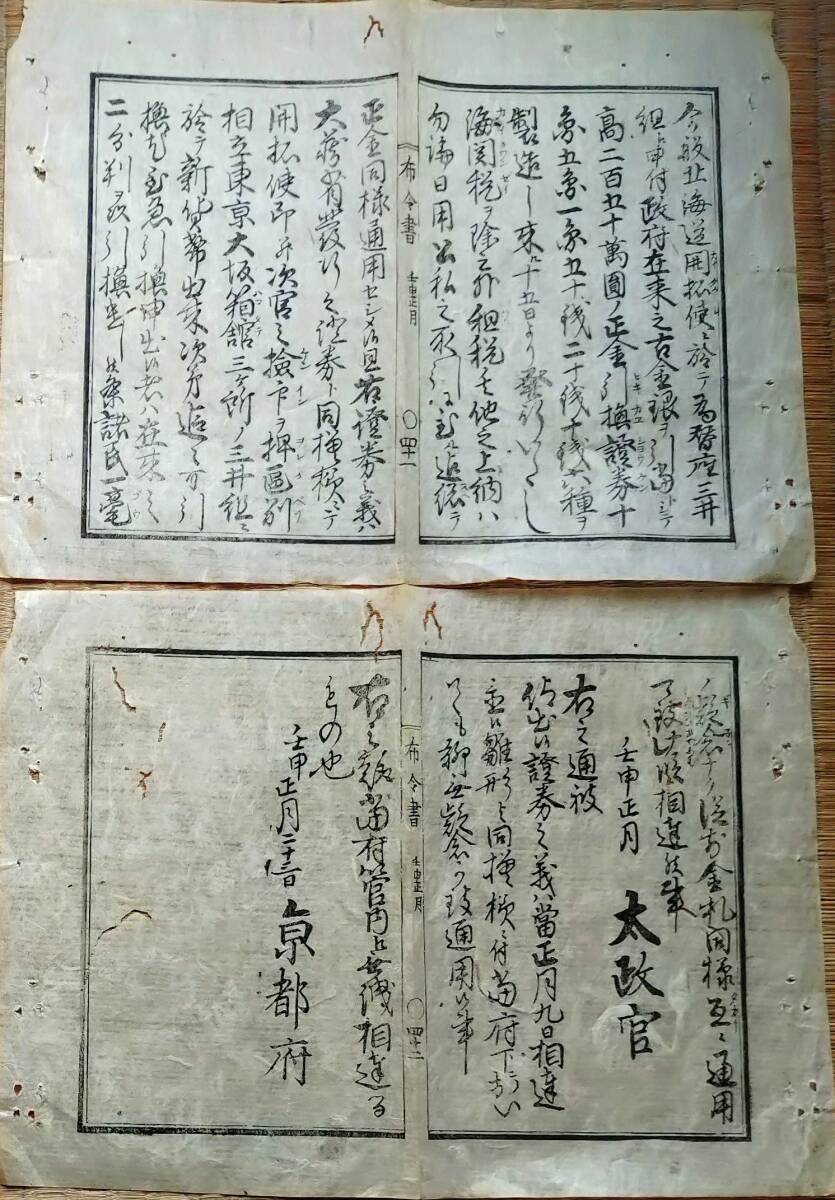 今般北海道開拓使ニ於テ為替座三井
組ヘ申付政府在来之古金銀ヲ引当トシテ
高二百五十萬圓ノ正金引換證券十
圓五圓一圓五十銭二十銭十銭六種ヲ
製造し来ル十五日より發行いたし
海関税ヲ除之外租税其他之上納ハ
勿論日用公私之取引ニ至ル迄総テ
布令書 壬申正月
〇四十一
正金同様通用セシメ候且右證券之義ハ
大蔵省發行之證券ト同種模様ニテ
開拓使印并次官之検印ヲ押区別
相立東京大坂箱館三ヶ所ノ三井組ニ
於テ新貨幣出来次第追々可引
換尤至急引換申出候者ハ在来之
二分判ヲ以引換遣し候条諸民一毫
ノ疑念ナク従前金札同様互ニ通用
可致此段相達候事
壬申正月
太政官
右之通被
仰出候證券之義ハ當正月九日相達
置候雛形と同模様ニ付當府下ニおい
ても聊無疑念可致通用候事
布令書 壬申正月
〇四十二
右之趣當府管内ヘ無洩相達る
もの也
壬申正月二十三日
京都府